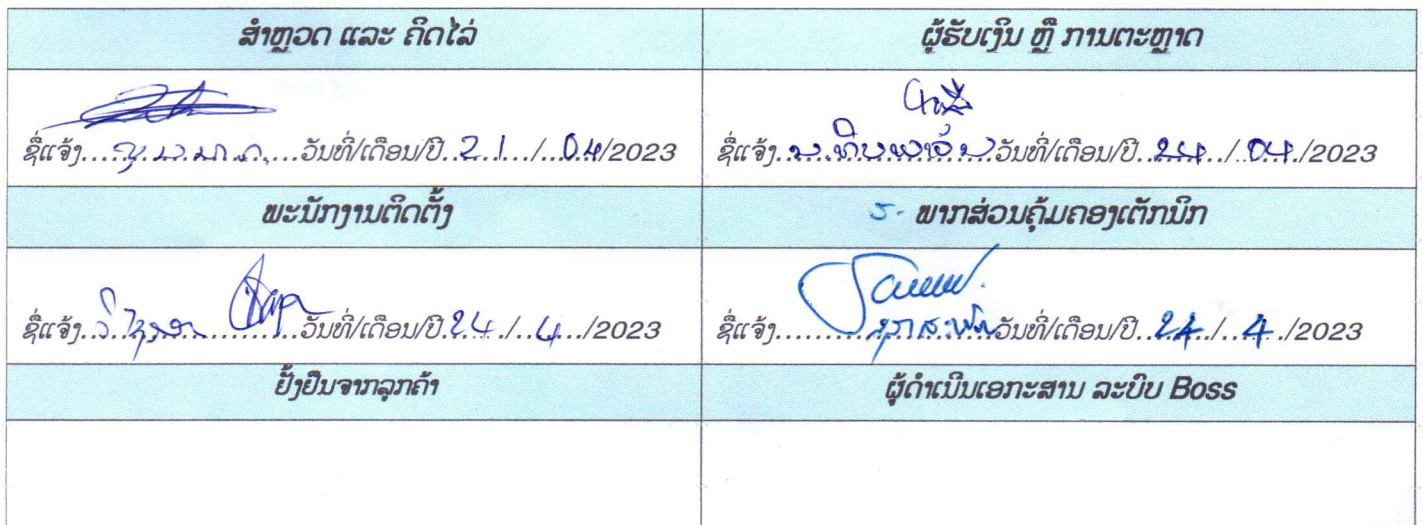 ສຳຫຼວດ ແລະ ຄິດໄລ່
ຜູ້ຮັບເງິນ ຫຼື ການຕະຫຼາດ
ຊື່ແຈ້ງ ວັນທີ່/ເດືອນ/ປີ 21/04/2023
ຊື່ແຈ້ງ ວັນທີ່/ເດືອນ/ປີ 24/04/2023
ພະນັກງານຕິດຕັ້ງ
ພາກສ່ວນຄຸ້ມຄອງເຕັກນິກ
ຊື່ແຈ້ງ ວັນທີ່/ເດືອນ/ປີ 24/4/2023
ຊື່ແຈ້ງ ວັນທີ່/ເດືອນ/ປີ 24/4/2023
ຢັ້ງຢືນຈາກລູກຄ້າ
ຜູ້ດຳເນີນເອກະສານ ລະບົບ Boss